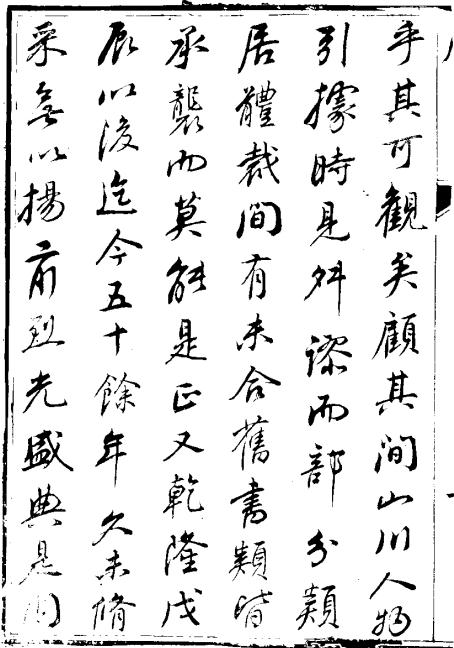 乎其可觀矣顧其間山川人物
引據時見舛謬而部分類
居體裁間有未合舊書類皆
承襲而莫能是正又乾隆戊
辰以後迄今五十餘年久未脩
采無以揚前烈光盛典是用